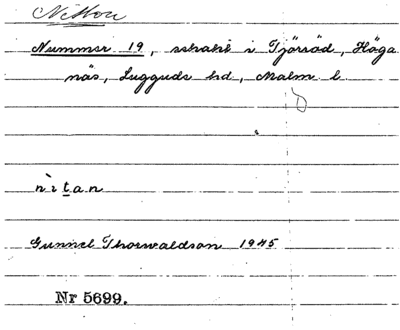 Nitton
Nummer 19, schakt i Tjörröd, Höga
näs, Luggude hd, Malm l.
nìtan
Gunnel Thorwaldson 1945
Nr 5699.